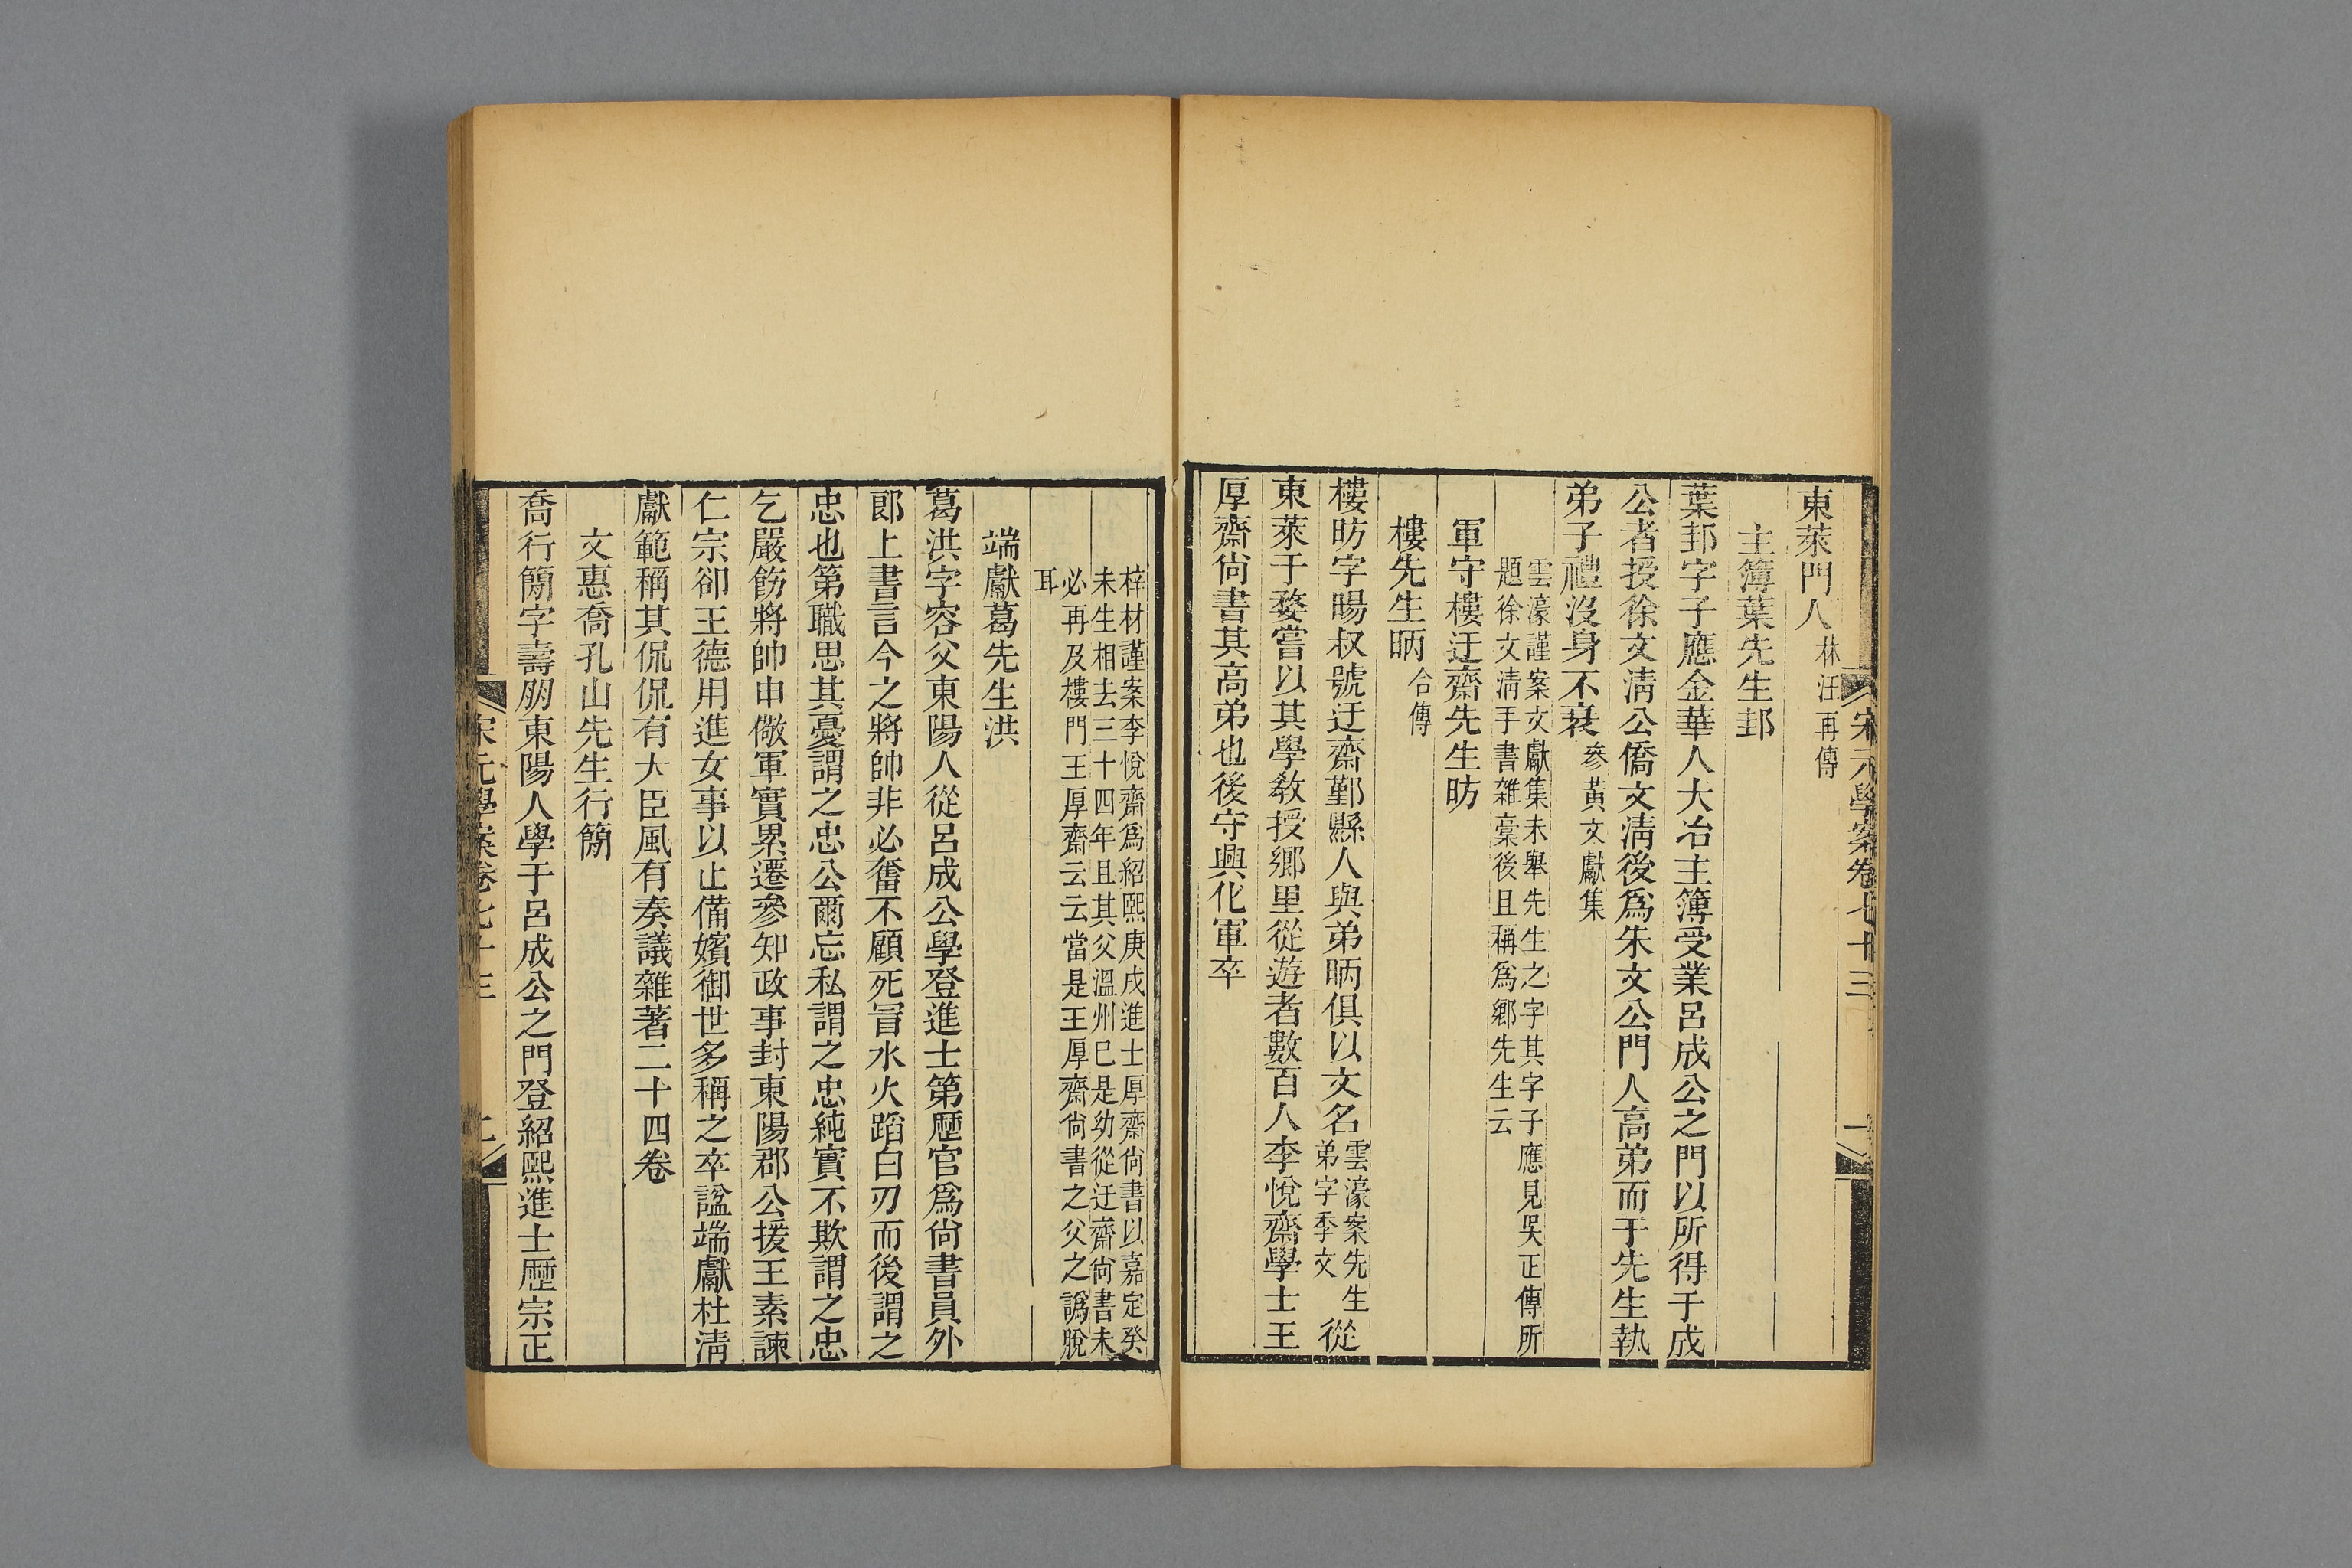 宋元學案卷七十三
一
東萊門人林汪再傳
主簿葉先生邽
葉邽字子應金華人大冶主簿受業呂成公之門以所得于成
公者授徐文淸公僑文淸後爲朱文公門人高弟而于先生執
弟子禮沒身不衰參黃文獻集
雲濠謹案文獻集未舉先生之字其字子應見吳正傳所
題徐文淸手書雜稾後且稱爲鄉先生云
軍守樓迂齋先生昉
樓先生昞合傳
樓昉字暘叔號迂齋鄞縣人與弟昞俱以文名雲濠案先生弟字季文從
東萊于婺嘗以其學敎授鄉里從遊者數百人李悅齋學士王
厚齋尙書其高弟也後守興化軍卒
梓材謹案李悅齋爲紹熙庚戌進士厚齋尙書以嘉定癸
未生相去三十四年且其父溫州已是幼從迂齋尙書未
必再及樓門王厚齋云云當是王厚齋尙書之父之譌脫
耳
端獻葛先生洪
葛洪字容父東陽人從呂成公學登進士第歷官爲尙書員外
郎上書言今之將帥非必奮不顧死冒水火蹈白刃而後謂之
忠也第職思其憂謂之忠公爾忘私謂之忠純實不欺謂之忠
乞嚴飭將帥申儆軍實累遷參知政事封東陽郡公援王素諫
仁宗卻王德用進女事以止備嬪御世多稱之卒諡端獻杜淸
獻範稱其侃侃有大臣風有奏議雜著二十四卷
文惠喬孔山先生行簡
喬行簡字壽朋東陽人學于呂成公之門登紹熙進士歷宗正
宋元學案卷七十三
二